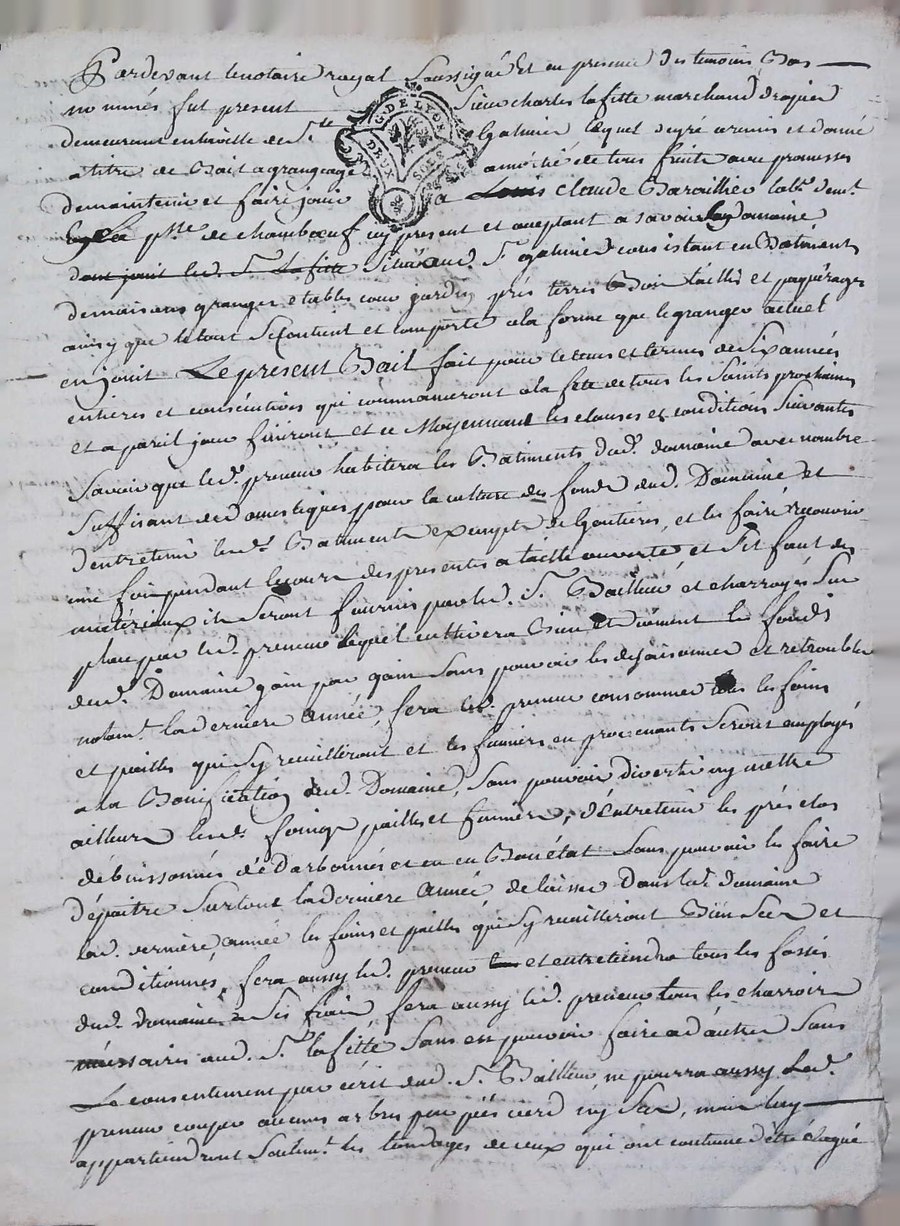 Pardevant le notaire royal Soussigné Et en presence des temoins Bas
nommés fut present Sieur charles lafitte marchand drogier
demeurant en la ville de St. Galmier lequel degré a remis et donné
G. DE LYON
DEUX SOLS
a titre de Bail a grangeage a moitié de tous fruits avec promesses
de maintenir et faire jouir a Louis claude Baraillier labr. demt.
psse. de chambœuf icy present et acceptant a savoir le domaine
dont jouit led. Sr. Lafitte Situé aud. St. galmier consistant en Bâtiments
de maisons granges etables cour jardin prés terres Bois taillis et paquérages
ainsy que le tout Se Contient et comporte a la forme que le granger actuel
en jouit Le present Bail fait pour le tems et termes de Six années
entieres et consécutives qui commanceront a la fete de tous les Saints prochaines
et a pareil jour finiront et ce Moyennant les clauses et conditions Suivantes
Savoir que led. preneur habitera les Bâtiments dud. domaine avec nombre
Suffisant de domestiques pour la culture des fonds dud. Domaine et
d'entretenir lesd. Batiments exempts de Goutieres, et les faire recouvrir
une fois pendant le cours des presentes a taille ouverte et S'il faut des
matériaux ils Seront fournis par led. Sr. Bailleur et charroyés Sur
place par led. preneur lequel cultivera Bien Et dument les fonds
dud. Domaine gain par gain Sans pouvoir les desaisonner et retroubler
notamt. la derniere année, fera led. preneur consommer tous les foins
et pailles qui Sy recuilliront et les fumiers en provenants Seront employés
a la Bonification dud. Domaine, Sans pouvoir divertir ny mettre
ailleurs lesd. foings pailles et fumiers, d'entretenir les prés clos
débuissonnés dédarbonnés et en Bon état Sans pouvoir les faire
dépaitre Surtout la derniere année de laisser Dans led. domaine
lad. derniere année les foins et pailles qui Sy recuilliront Bien Sec et
conditionnés, fera aussy led. preneur et entretiendra tous les fossés
dud. domaine a Ses frais fera aussy led. preneur tous les charrois
nécessaires aud. Sr. lafitte Sans en pouvoir faire a d'autres Sans
Le consentement par écrit dud. Sr. Bailleur, ne pourra aussy Led.
preneur couper aucuns arbres par pied verd ny Sec, mais luy
appartiendront Seulemt. les tondages de ceux qui ont coutume d'être élagué